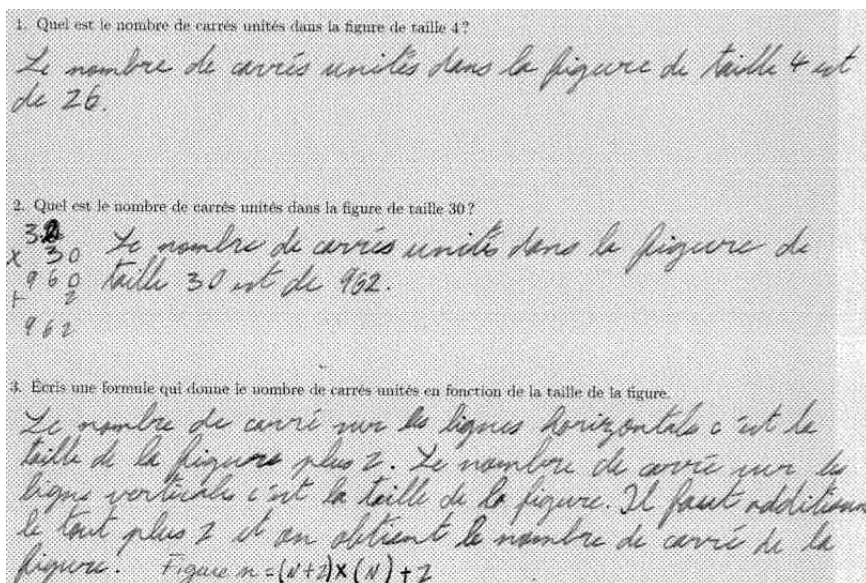 1. Quel est le nombre de carrés unités dans la figure de taille 4 ?
Le nombre de carrés unités dans la figure de taille 4 est
de 26.
2. Quel est le nombre de carrés unités dans la figure de taille 30 ?
32
x 30 Le nombre de carrés unités dans la figure de
960 taille 30 est de 962.
+ 2
962
3. Écris une formule qui donne le nombre de carrés unités en fonction de la taille de la figure.
Le nombre de carré sur les lignes horizontale c'est la
taille de la figure plus 2. Le nombre de carré sur les
ligne verticale c'est la taille de la figure. Il faut additionn
le tout plus 2 et on obtient le nombre de carré de la
figure. Figure n = (N+2)x(N)+2